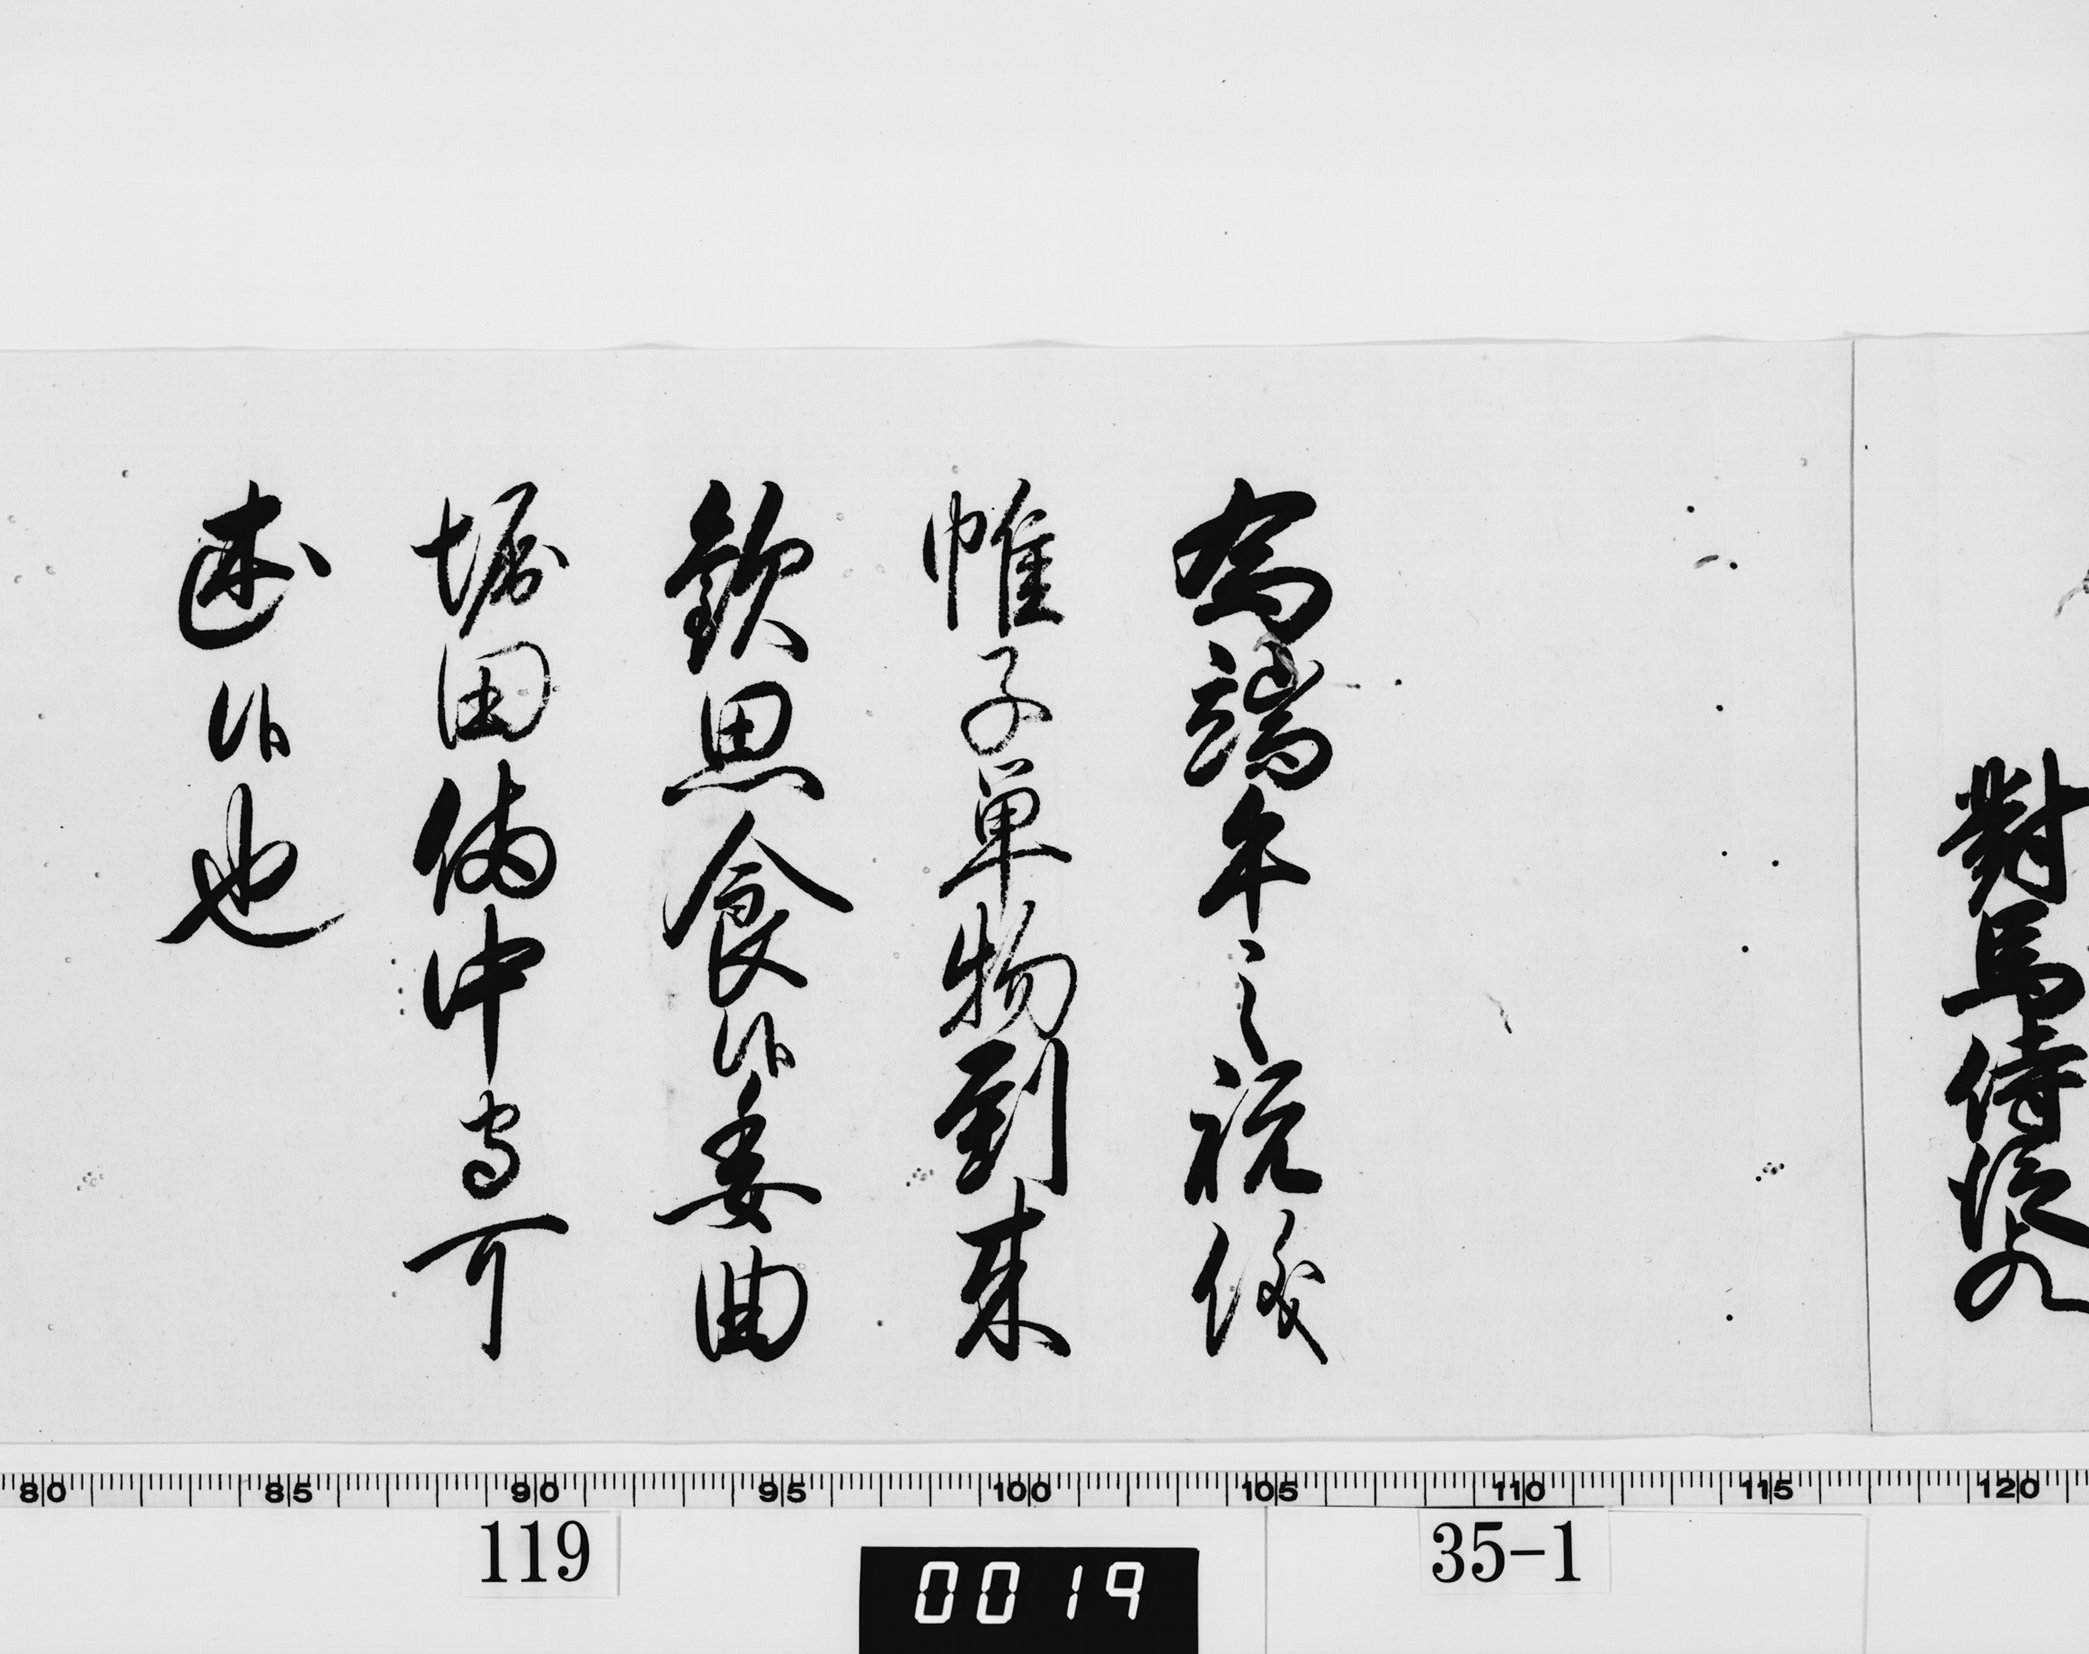 對馬侍従殿
為端午之祝儀
帷子単物到来
歓思食候委曲
堀田備中守可
述候也
80 85 90 95 100 105 110 115 120
119
0019
35-1